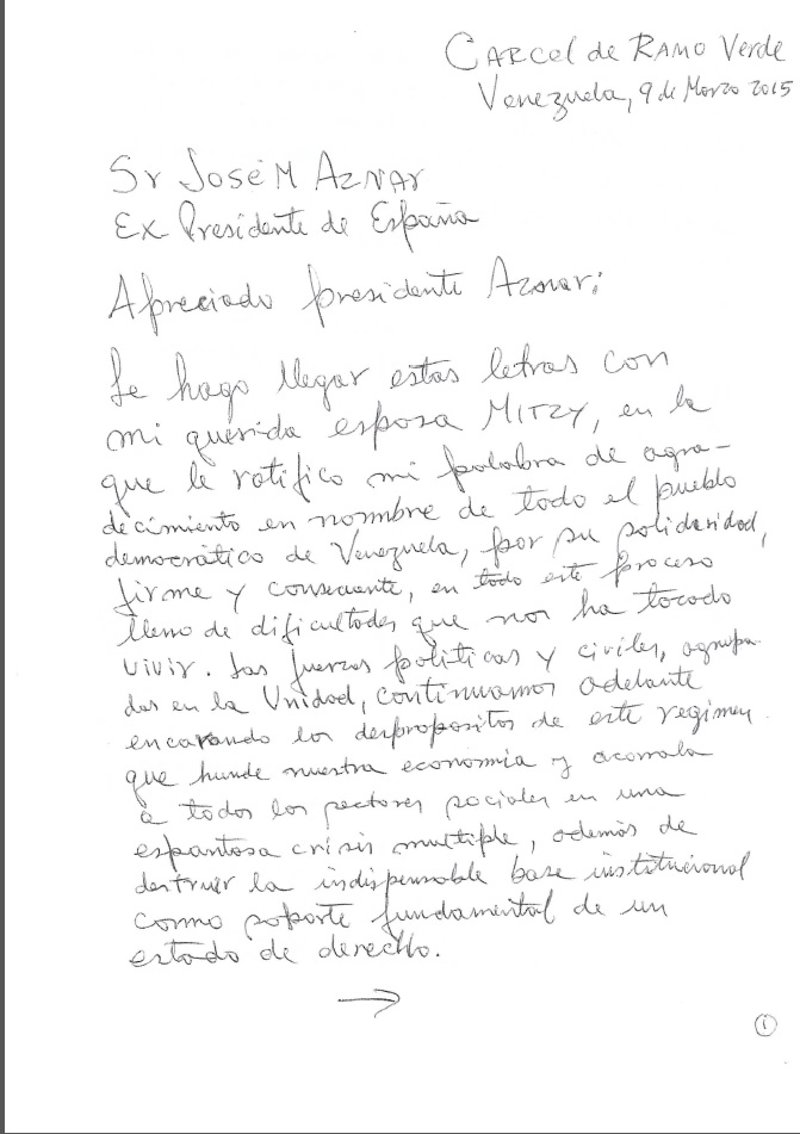 CARCel de RAMO Verde
Venezuela, 9 de Marzo 2015
Sr José M AZNAr
Ex Presidente de España
Apreciado presidente Aznar:
Le hago llegar estas letras con
mi querida esposa MITZY, en la
que le ratifico mi palabra de agra-
decimiento en nombre de todo el pueblo
democrático de Venezuela, por su solidaridad,
firme y consecuente, en todo este proceso
lleno de dificultades que nos ha tocado
vivir. Las fuerzas políticas y civiles, agrupa-
das en la Unidad, continuamos adelante
encarando los despropositos de este regimen
que hunde nuestra economía y acorrala
a todos los sectores sociales en una
espantosa crisis multiple, además de
destruir la indispensable base institucional
como soporte fundamental de un
estado de derecho.
→
1